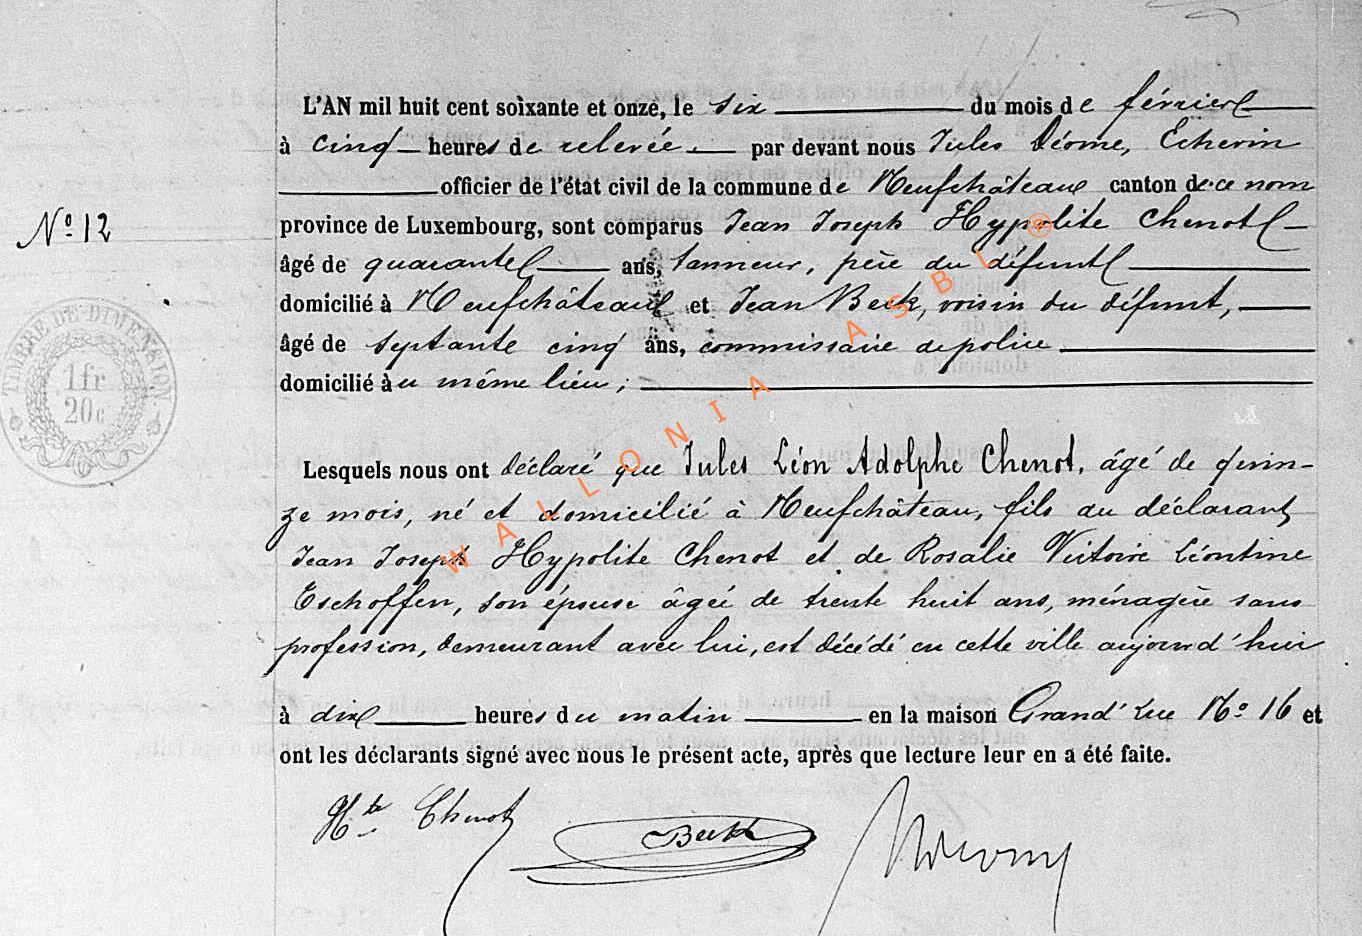 L'AN mil huit cent soixante et onze, le six du mois de février
à cinq heures de relevée. par devant nous Jules Déome, Echevin
officier de l'état civil de la commune de Neufchâteau canton de ce nom
N.o 12
province de Luxembourg, sont comparus Jean Joseph Hypolite Chenot
âgé de quarante ans, tanneur, père du défunt
domicilié à Neufchâteau et Jean Beck, voisin du défunt,
âgé de septante cinq ans, commissaire de police
domicilié au même lieu ;
TIMBRE DE DIMENSION
1fr
20c
Lesquels nous ont déclaré que Jules Léon Adolphe Chenot, âgé de quin-
ze mois, né et domicilié à Neufchâteau, fils du déclarant
Jean Joseph Hypolite Chenot et de Rosalie Victoire Léontine
Eschoffen, son épouse âgée de trente huit ans, ménagère sans
profession, demeurant avec lui, est décédé en cette ville aujourd'hui
à dix heures du matin en la maison Grand'rue No 16 et
ont les déclarants signé avec nous le présent acte, après que lecture leur en a été faite.
Hte Chenot
Beck
WALLONIA ASBL ®